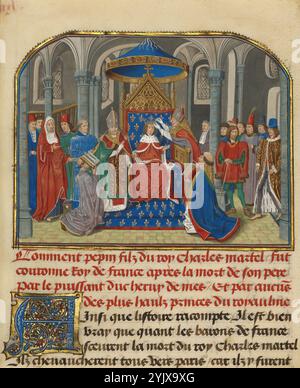 Comment pepin filz du roy Charles martel fut
couronne Roy de france apres la mort de son pere
Par le puissant duc heruy de mes / Et par aucuns
des plus haulz princes du royaulme
Ainsi que listoire racompte Il est bien
vray que quant les barons de france
sceurent la mort du roy Charles martel
Ilz cheuaucherent tous vers paris car ilz y furent
alamy
Image ID: 2YJX9XG
www.alamy.com